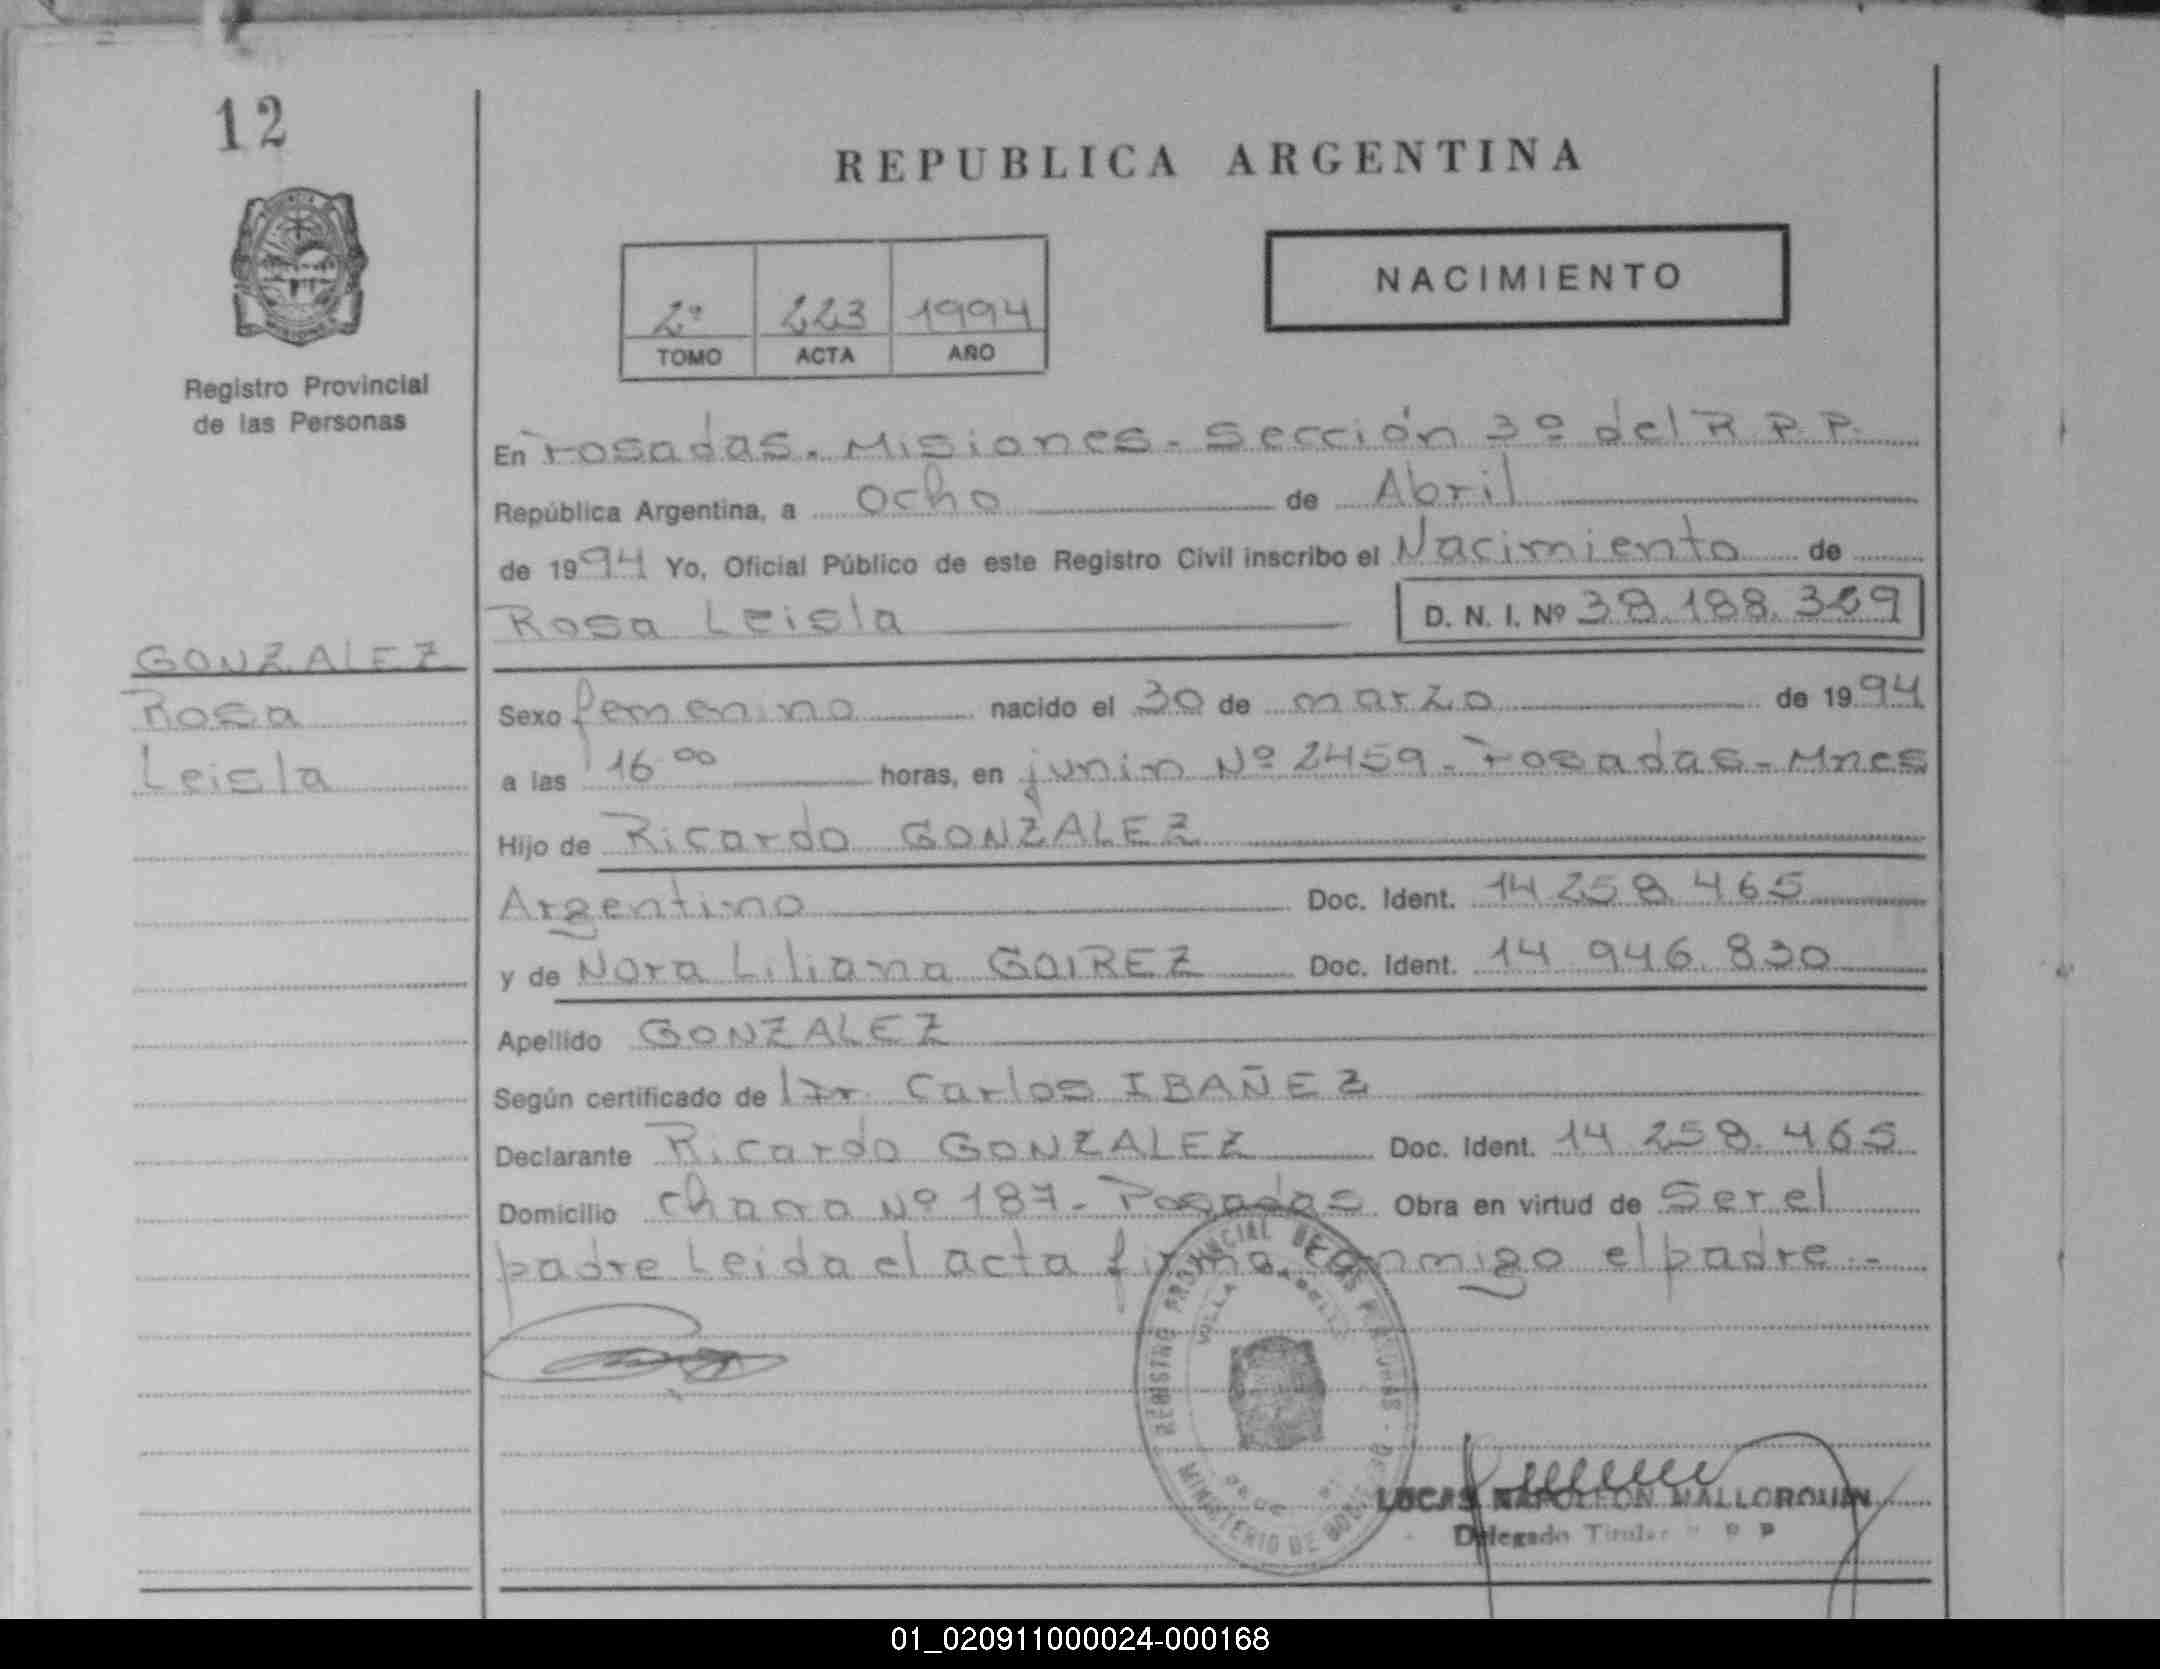 12
REPUBLICA ARGENTINA
NACIMIENTO
2º 223 1994
TOMO ACTA AÑO
Registro Provincial
de las Personas
En Posadas. Misiones. Sección 3º del R.P.P.
República Argentina, a Ocho de Abril
de 1994 Yo, Oficial Público de este Registro Civil inscribo el Nacimiento de
Rosa Leisla D. N. I. Nº 38.188.369
GONZALEZ
Rosa
Leisla
Sexo femenino nacido el 30 de marzo de 1994
a las 16 00 horas, en junin Nº 2459 - Posadas - Mnes
Hijo de Ricardo GONZALEZ
Argentino Doc. Ident. 14 258. 465
y de Nora Liliana GOIREZ Doc. Ident. 14 946. 830
Apellido GONZALEZ
Según certificado de Dr. Carlos IBAÑEZ
Declarante Ricardo GONZALEZ Doc. Ident. 14 258. 465
Domicilio Chacra Nº 187 - Posadas Obra en virtud de Ser el
padre Leida el acta firma conmigo el padre.-
REGISTRO PROVINCIAL DE LAS PERSONAS
VILLA
MINISTERIO DE GOBIERNO
LUCAS NAPOLEON MALLORQUIN
Delegado Titular R P P
01_020911000024-000168